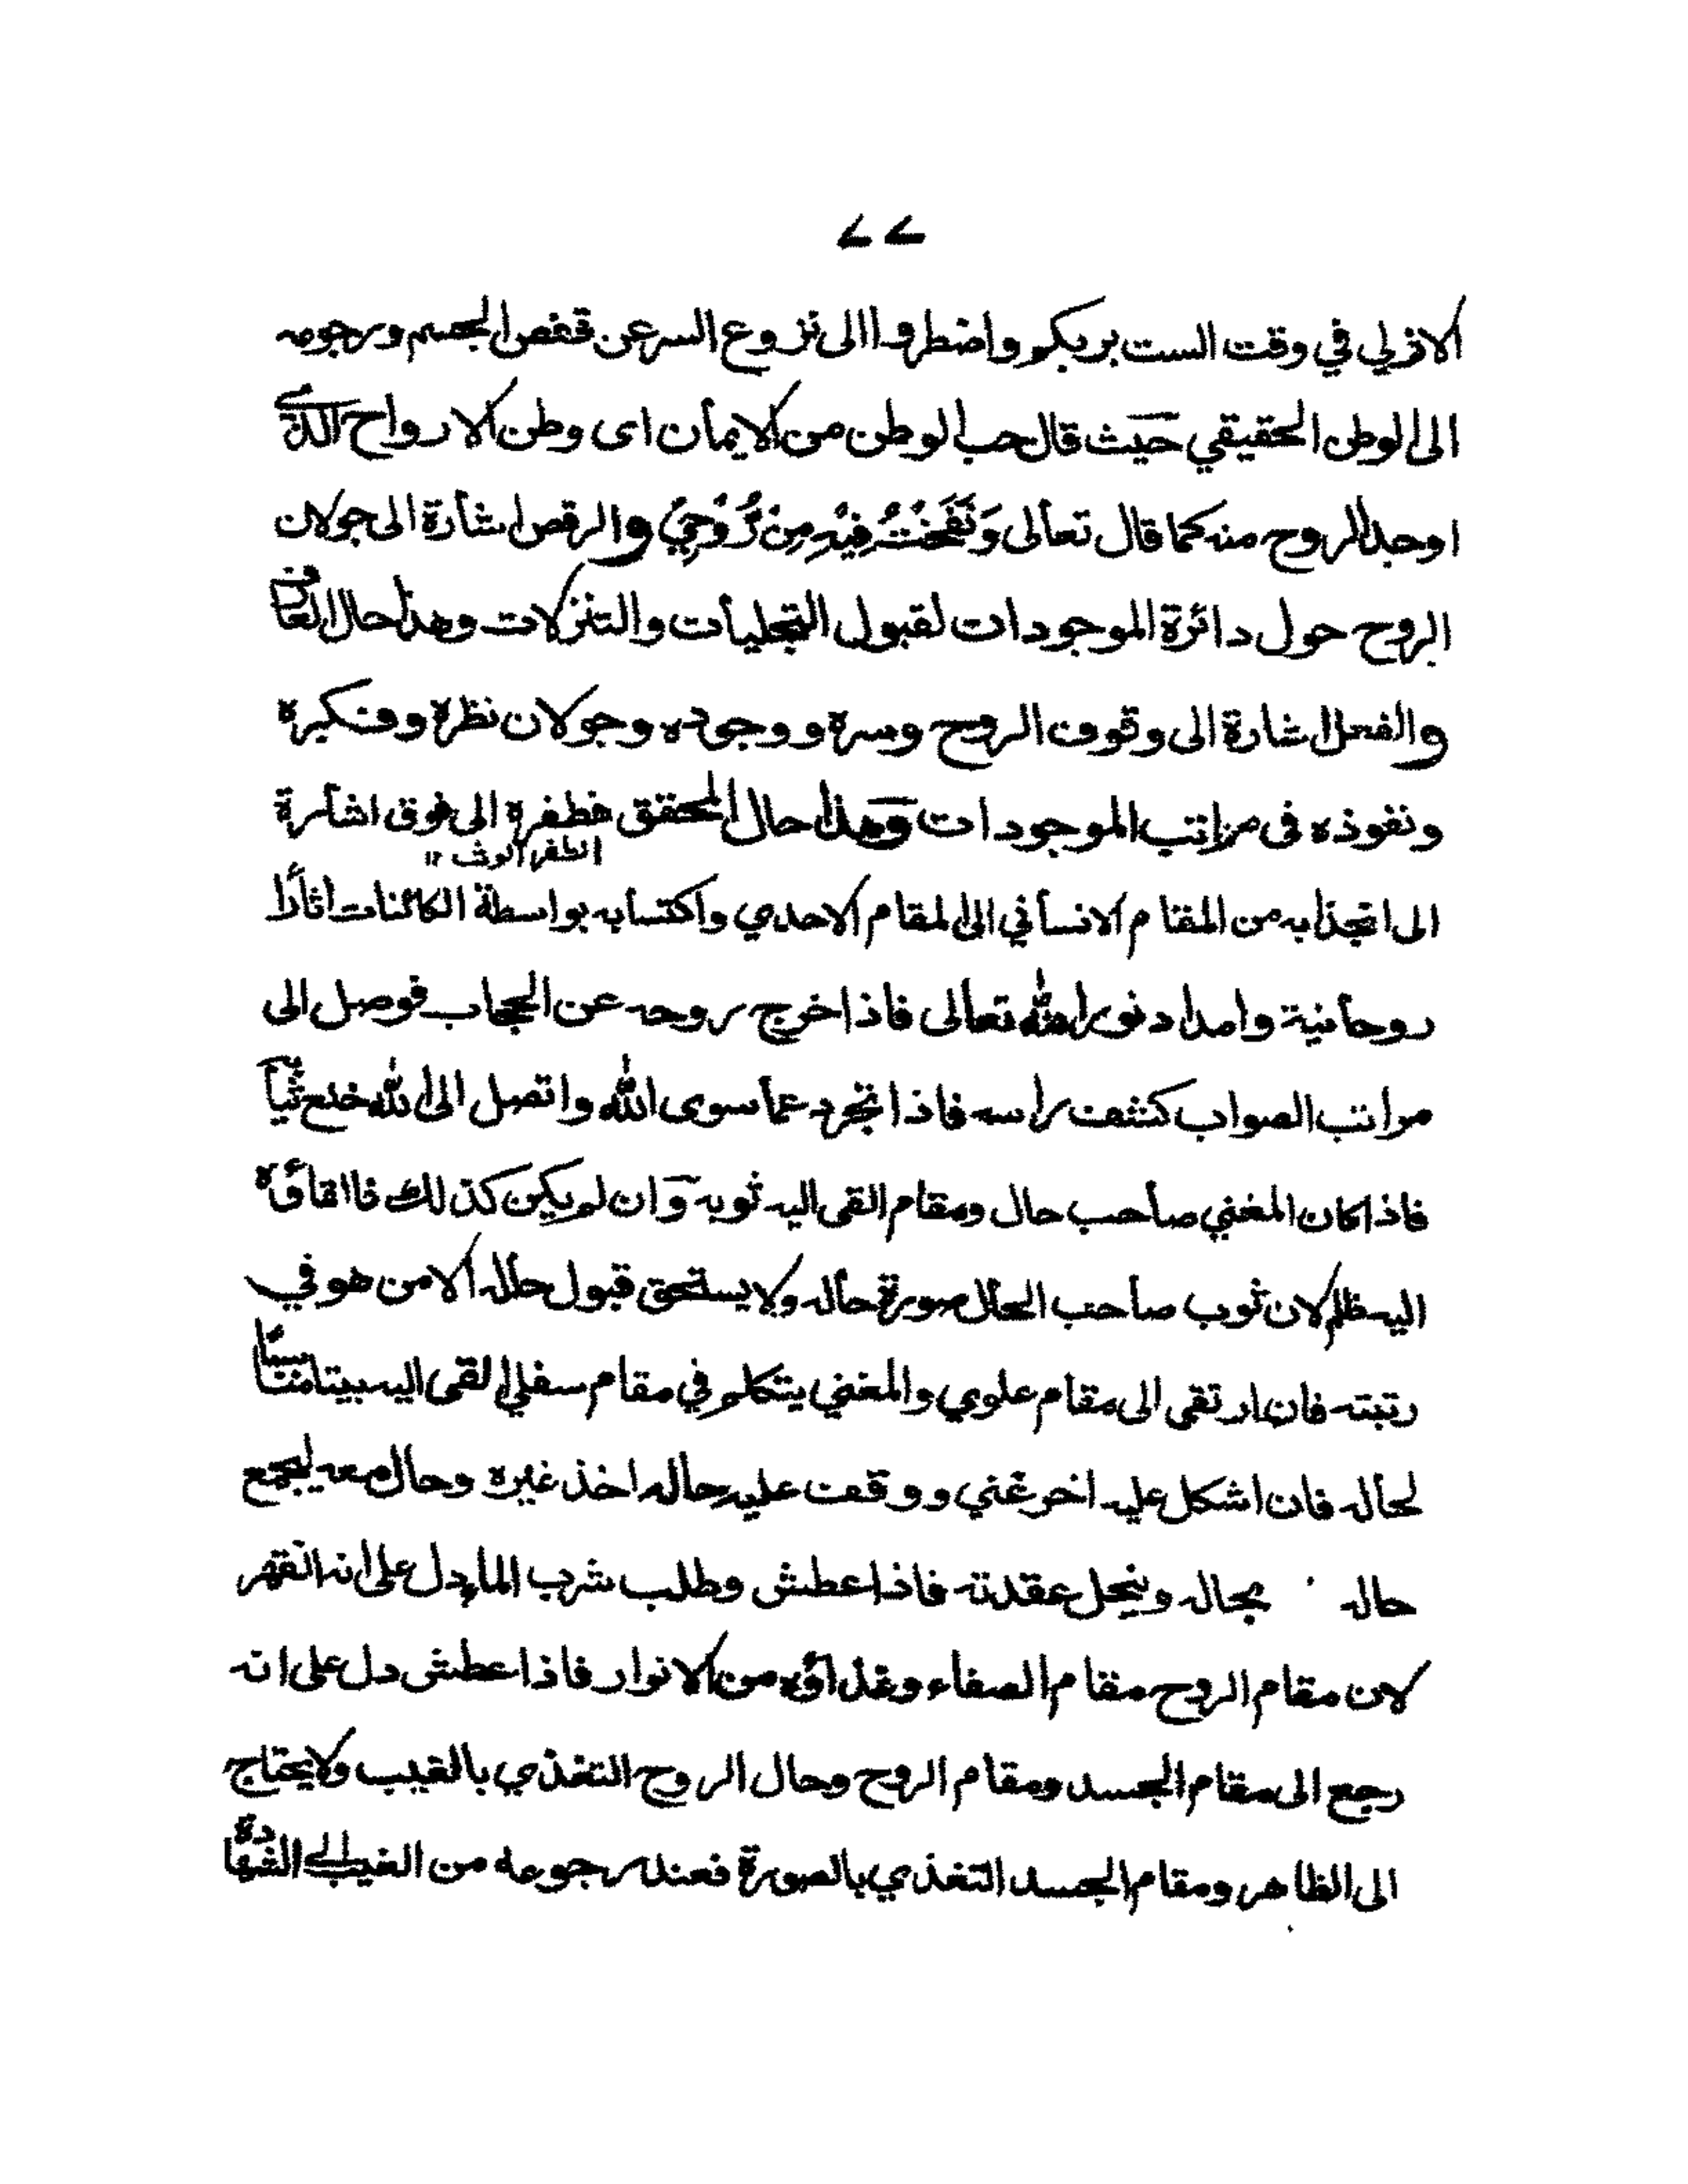 ٧٧
الازلي في وقت الست بربكم واضطروا الى نزوع السر عن قفص الجسم ورجوعه
الى الوطن الحقيقي حيث قال حب الوطن من الايمان اى وطن الارواح الذى
اوجد الروح منه كما قال تعالى وَنَفَخْتُ فِيْهِ مِنْ رُّوْحِيْ والرقص اشارة الى جولان
الروح حول دائرة الموجودات لقبول التجليات والتنزلات وهذا حال العارف
والفعل اشارة الى وقوف الروح وسره ووجوده وجولان نظره وفكيره
ونفوذه فى مراتب الموجودات وهذا حال المحقق فطفره الى فوق اشارة
الطفر الوثب ١٢
الى انجذابه من المقام الانساني الى المقام الاحدي واكتسابه بواسطة الكائنات اثارا
روحانية وامداد نور الله تعالى فاذا خرج روحه عن الحجاب فوصل الى
مراتب الصواب كشف راسه فاذا تجرد عما سوى الله واتصل الى الله خلع ثيابه
فاذا كان المغني صاحب حال ومقام القى اليه ثوبه وان لم يكن كذلك فالقاؤه
اليه ظلم لان ثوب صاحب الحال صورة حاله ولا يستحق قبول حاله الا من هو في
رتبته فان ارتقى الى مقام علوي والمغني يتكلم في مقام سفلي القى اليه بيتا مناسبًا
لحاله فان اشكل عليه اخر غني ووقف عليه حاله اخذ غيره وحال معه ليجمع
حاله بحاله وينحل عقدته فاذا عطش وطلب شرب الماء دل على انه انقهر
لان مقام الروح مقام الصفاء وغذاؤه من الانوار فاذا عطش دل على انه
رجع الى مقام الجسد ومقام الروح وحال الروح التغذي بالغيب ولا يحتاج
الى الظاهر ومقام الجسد التغذي بالصورة فعند رجوعه من الغيب الى الشهادة